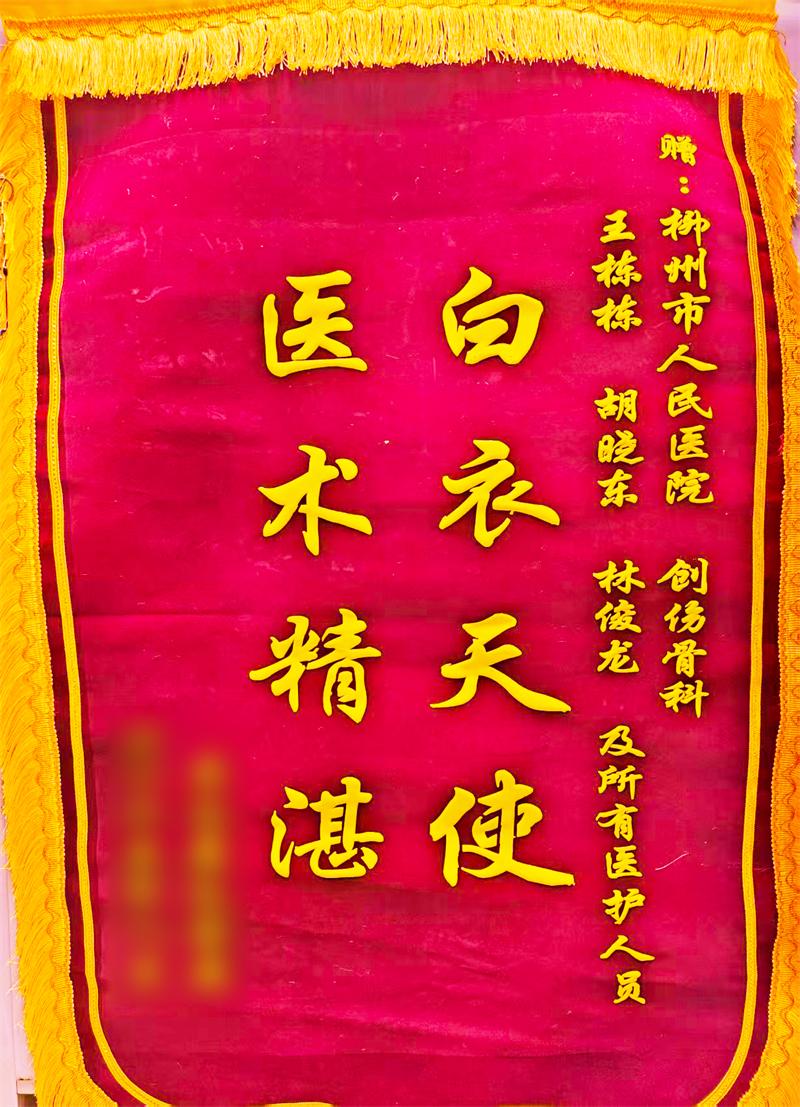 赠：柳州市人民医院 创伤骨科
王栋栋 胡晓东 林俊龙 及所有医护人员
白衣天使
医术精湛